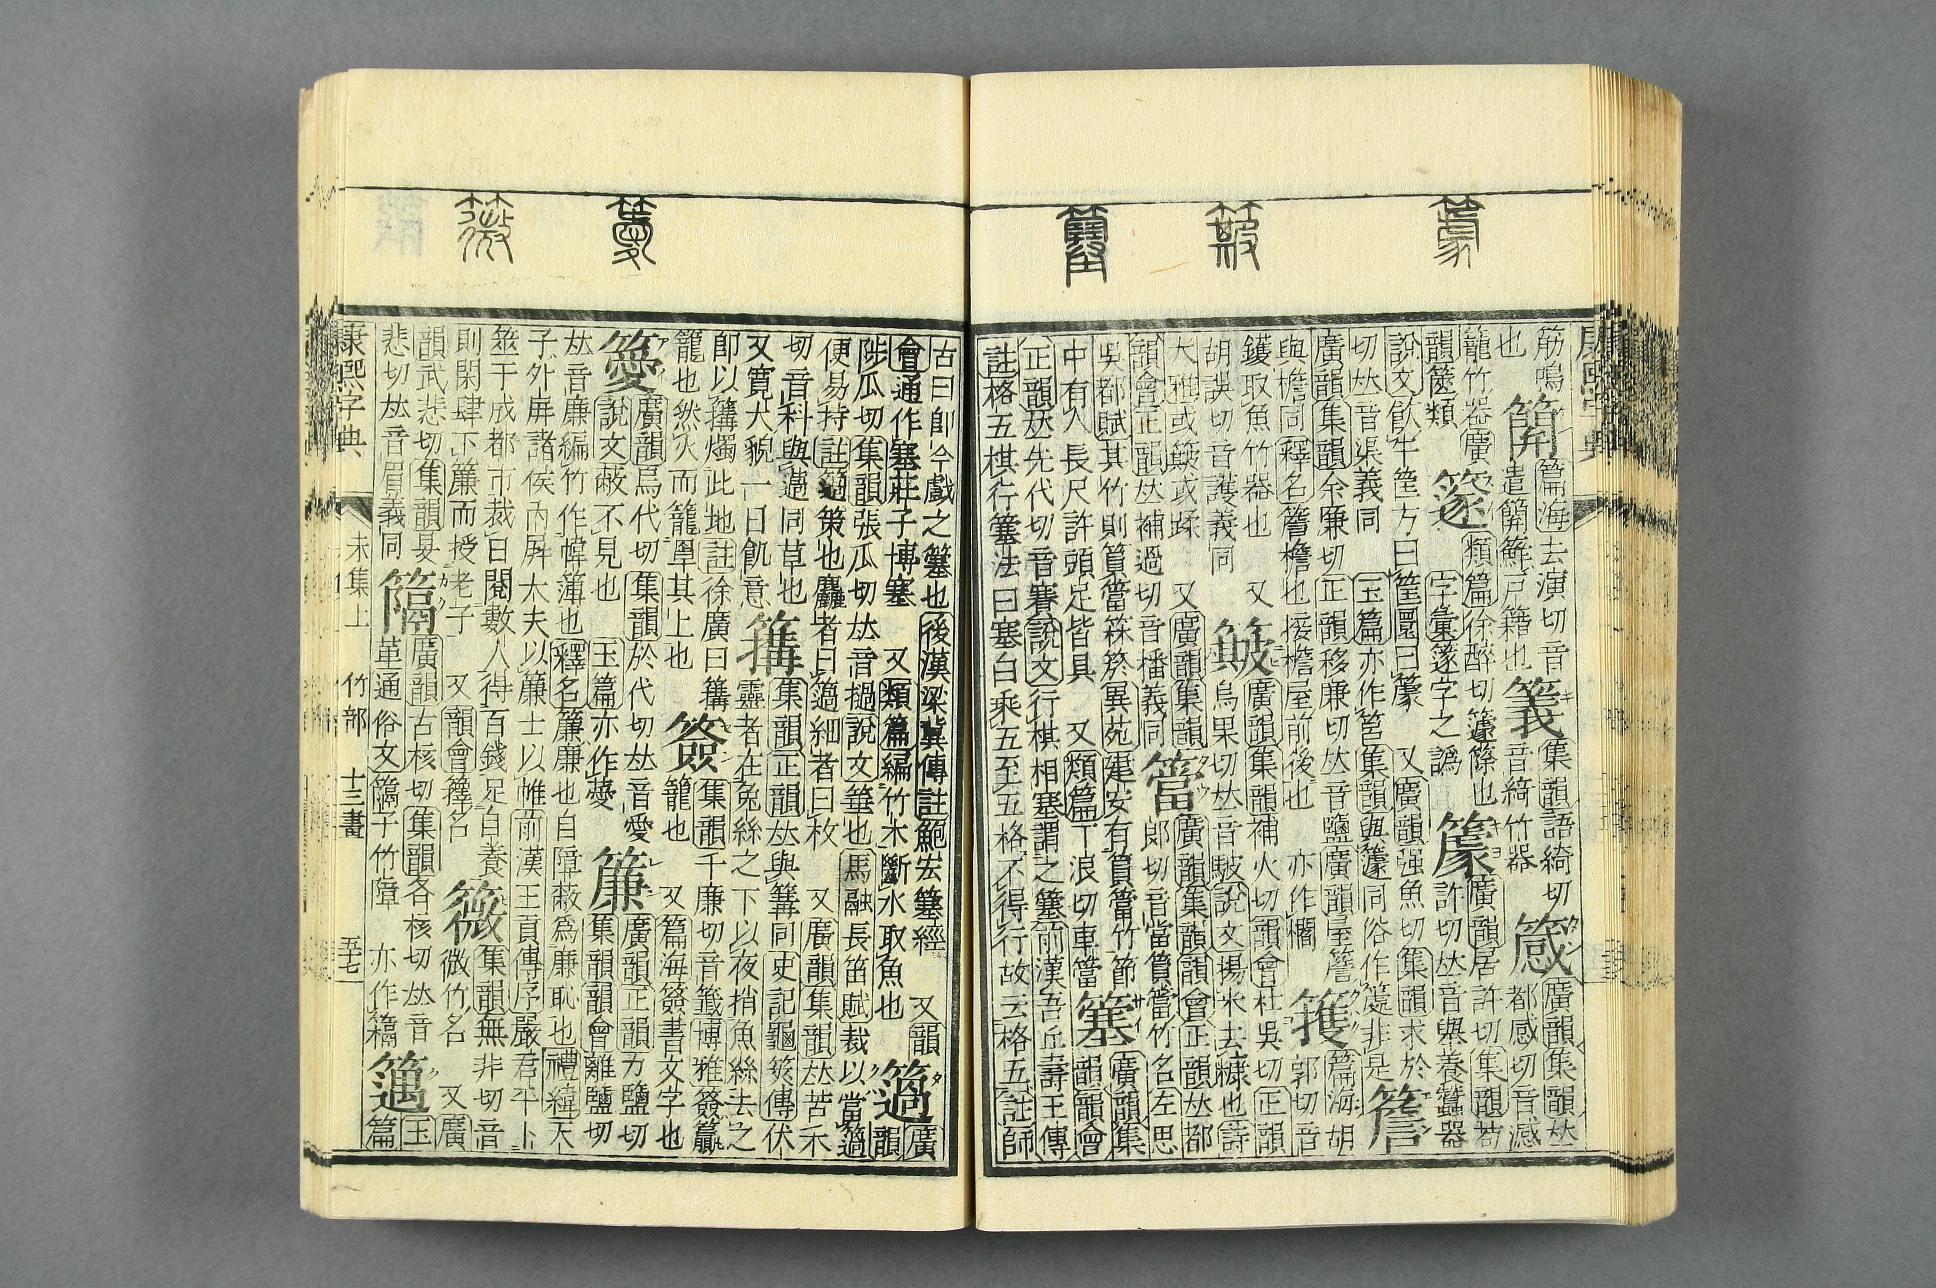 康熙字典
筋鳴 篇海去演切音 䉝 集韻語綺切 䉞 廣韻集韻𠀤
也 遣 戸籍也 音綺竹器 都感切音感
籠竹器廣 䉌 類篇徐醉切籧篨也 簴 廣韻居許切集韻苟
韻篋類 字彙篴字之譌 許切𠀤音舉養蠶器
說文飮牛筐方曰筐圜曰簴 又廣韻强魚切集韻求於
切𠀤音渠義同 玉篇亦作筥集韻與籧同俗作 非是 簷
廣韻集韻余廉切正韻移廉切𠀤音鹽廣韻屋簷 篗 篇海胡
與檐同釋名簷檐也接檐屋前後也 亦作櫩 郭切音
鑊取魚竹器也 又 簸 廣韻集韻補火切韻會杜吳切正韻
胡誤切音護義同 烏果切𠀤音駊說文揚米去糠也詩
大雅或簸或蹂 又廣韻集韻 簹 廣韻集韻韻會正韻𠀤都
韻會正韻𠀤補過切音播義同 郎切音當篔簹竹名左思
吳都賦其竹則篔簹箖箊異苑建安有篔簹竹節 簺 廣韻集
中有人長尺許頭足皆具 又類篇丁浪切車簹 韻韻會
正韻𠀤先代切音賽說文行棋相塞謂之簺前漢吾丘壽王傳
註格五棋行簺法曰塞白乘五至五格不得行故云格五註師
古曰卽今戲之簺也後漢梁冀傳註鮑宏簺經 又韻
會通作塞莊子博塞 又類篇編竹木斷水取魚也 簻 廣韻
陟瓜切集韻張瓜切𠀤音撾說文箠也馬融長笛賦裁以當簻
便易持註簻策也麤者曰簻細者曰枚 又廣韻集韻𠀤苦禾
切音科與薖同草也 篝 集韻正韻𠀤與篝同史記龜筴傳伏
又寬大貌一曰飢意 靈者在兔絲之下以夜捎兔絲去之
卽以篝燭此地註徐廣曰篝 簽 集韻千廉切音籤博雅簽籯
籠也然火而籠罩其上也 籠也 又篇海簽書文字也
䉨 廣韻烏代切集韻於代切𠀤音愛 簾 廣韻正韻力鹽切
說文蔽不見也 玉篇亦作薆 集韻韻會離鹽切
𠀤音廉編竹作幃薄也釋名簾廉也自障蔽爲廉恥也禮緯天
子外屛諸侯內屛大夫以簾士以帷前漢王貢傳序嚴君平卜
筮于成都市裁日閱數人得百錢足自養
則閑肆下簾而授老子 又韻會籜名 薇 集韻無非切音
韻武悲切集韻旻 䈷 廣韻古核切集韻各核切𠀤音
悲切𠀤音眉義同 革通俗文䈷子竹障 亦作槅 薖 篇
康熙字典 未集上 竹部 十三畫 五七